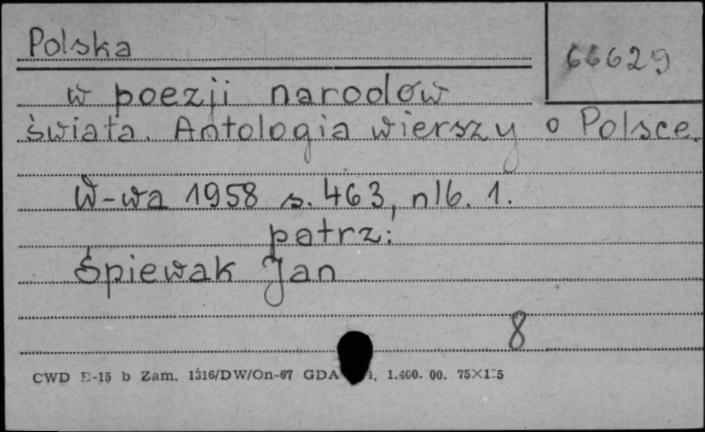 Polska
66629
w poezji narodów
świata. Antologia wierszy o Polsce.
W-wa 1958 s. 463, nlb. 1.
patrz:
Śpiewak Jan
8
CWD E-15 b Zam. 1316/DW/On-67 GDA 1.400.00. 75×125